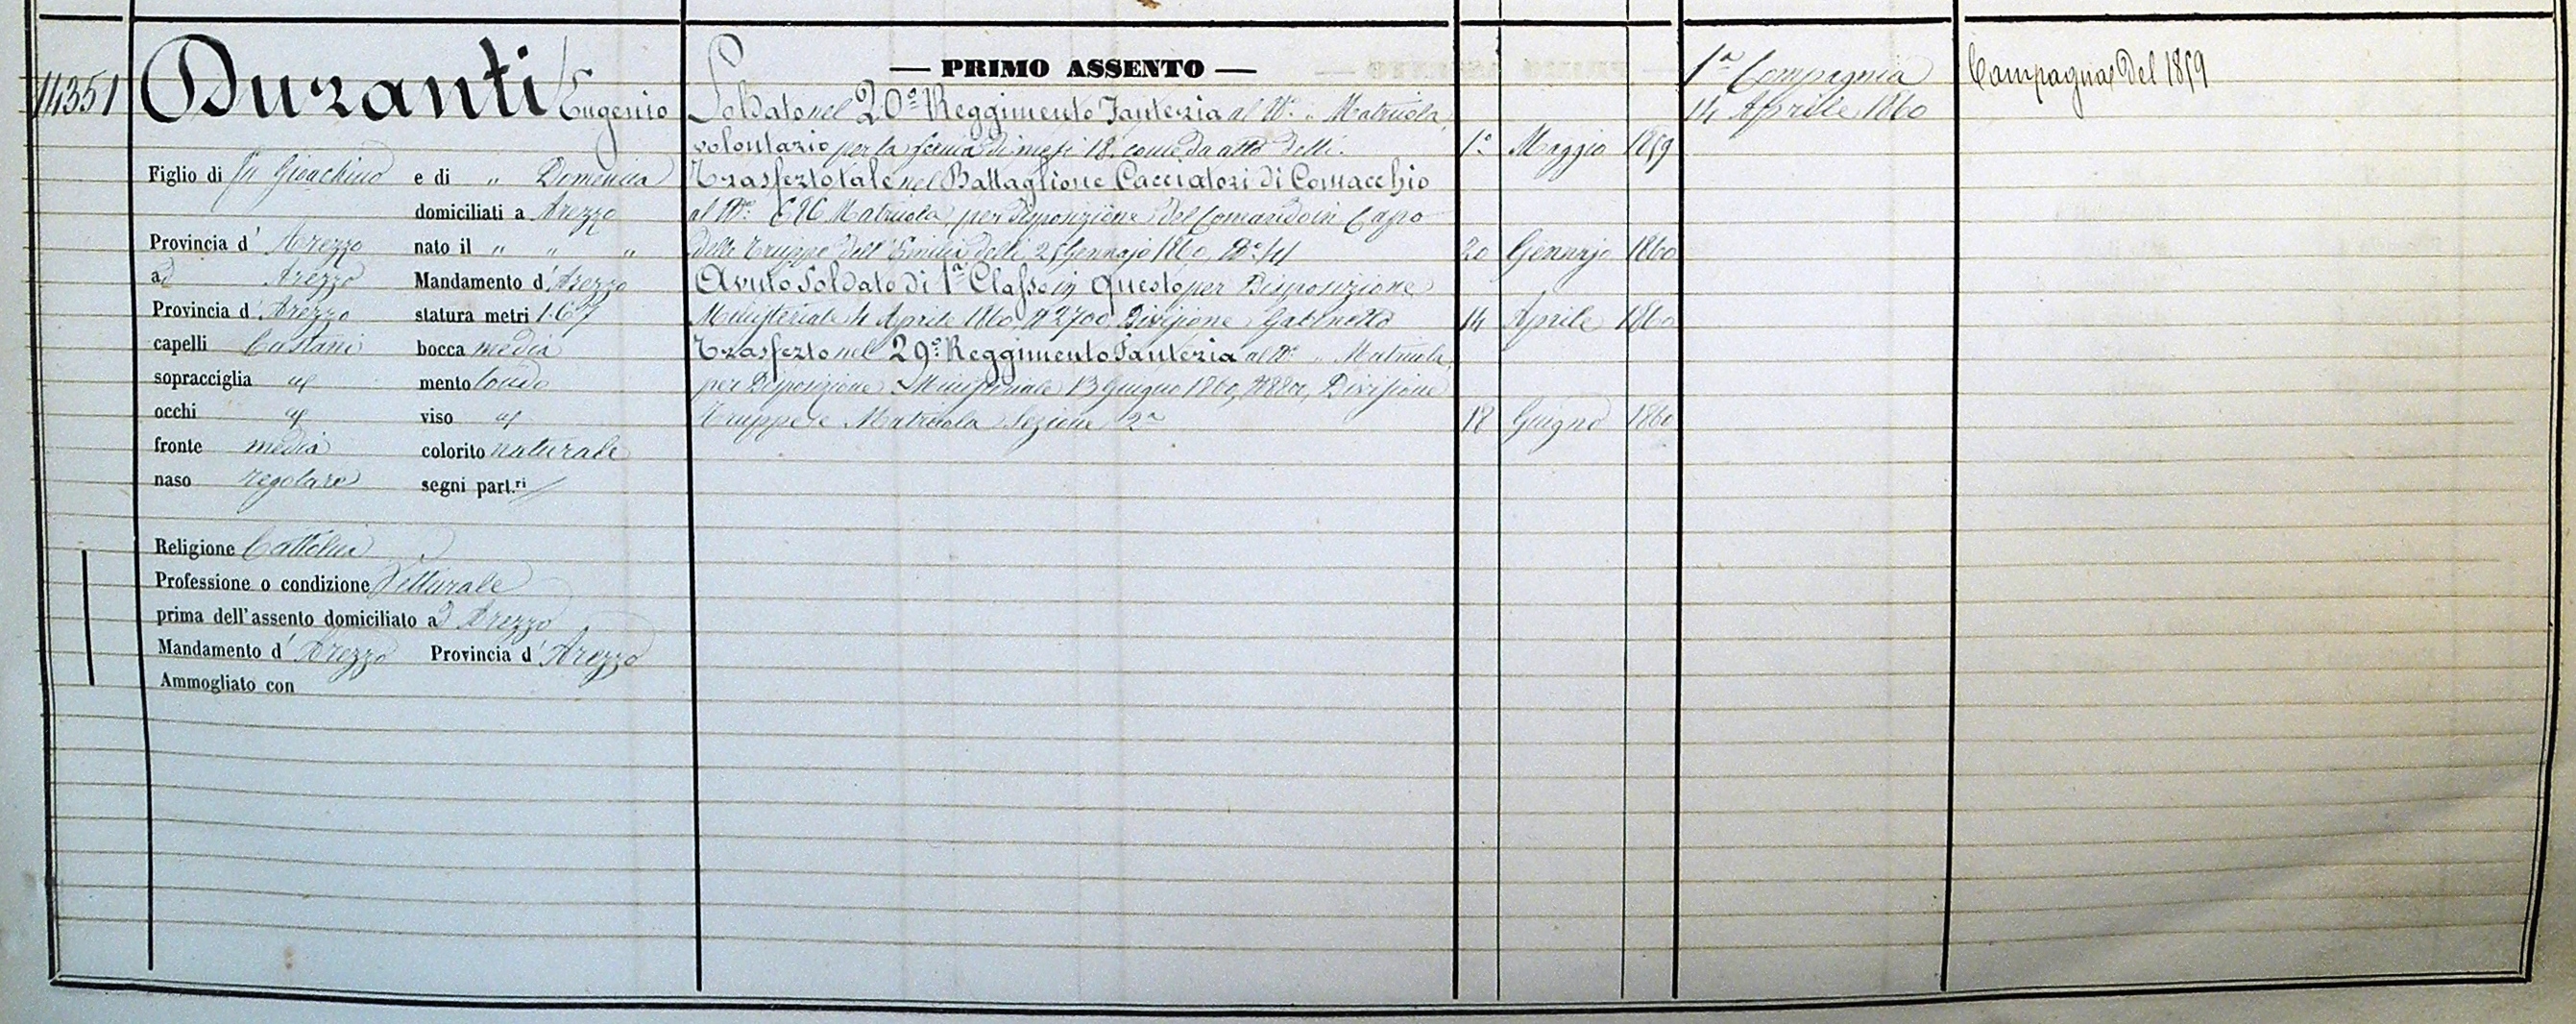 14351
Duranti Eugenio
Figlio di fu Gioachino e di " Domenica
domiciliati a Arezzo
Provincia d' Arezzo nato il " " "
ad Arezzo Mandamento d' Arezzo
Provincia d' Arezzo statura metri 1.67
capelli Castani bocca media
sopracciglia id mento tondo
occhi id viso id
fronte media colorito naturale
naso regolare segni part.ri /
Religione Cattolica
Professione o condizione Vetturale
prima dell'assento domiciliato ad Arezzo
Mandamento d' Arezzo Provincia d' Arezzo
Ammogliato con
— PRIMO ASSENTO —
Soldato nel 20º Reggimento Fanteria al Nº " Matricola,
volontario per la ferma di mesi 18. come da atto delli. 1º Maggio 1859
Trasferto tale nel Battaglione Cacciatori di Comacchio
al Nº Matricola per Disposizione del Comando in Capo
delle Truppe dell'Emilia delli 25 Gennajo 1860, Nº 20 Gennajo 1860
Avuto Soldato di 1ª Classe in questo per Disposizione
Ministeriale 4 Aprile 1860, Nº 2700, Divisione Gabinetto 14 Aprile 1860
Trasferto nel 29º Reggimento Fanteria al Nº " Matricola
per Disposizione Ministeriale 13 Giugno 1860, Divisione
Truppe e Matricola Sezione 2ª 18 Giugno 1860
1ª Compagnia
14 Aprile 1860
Campagna del 1859